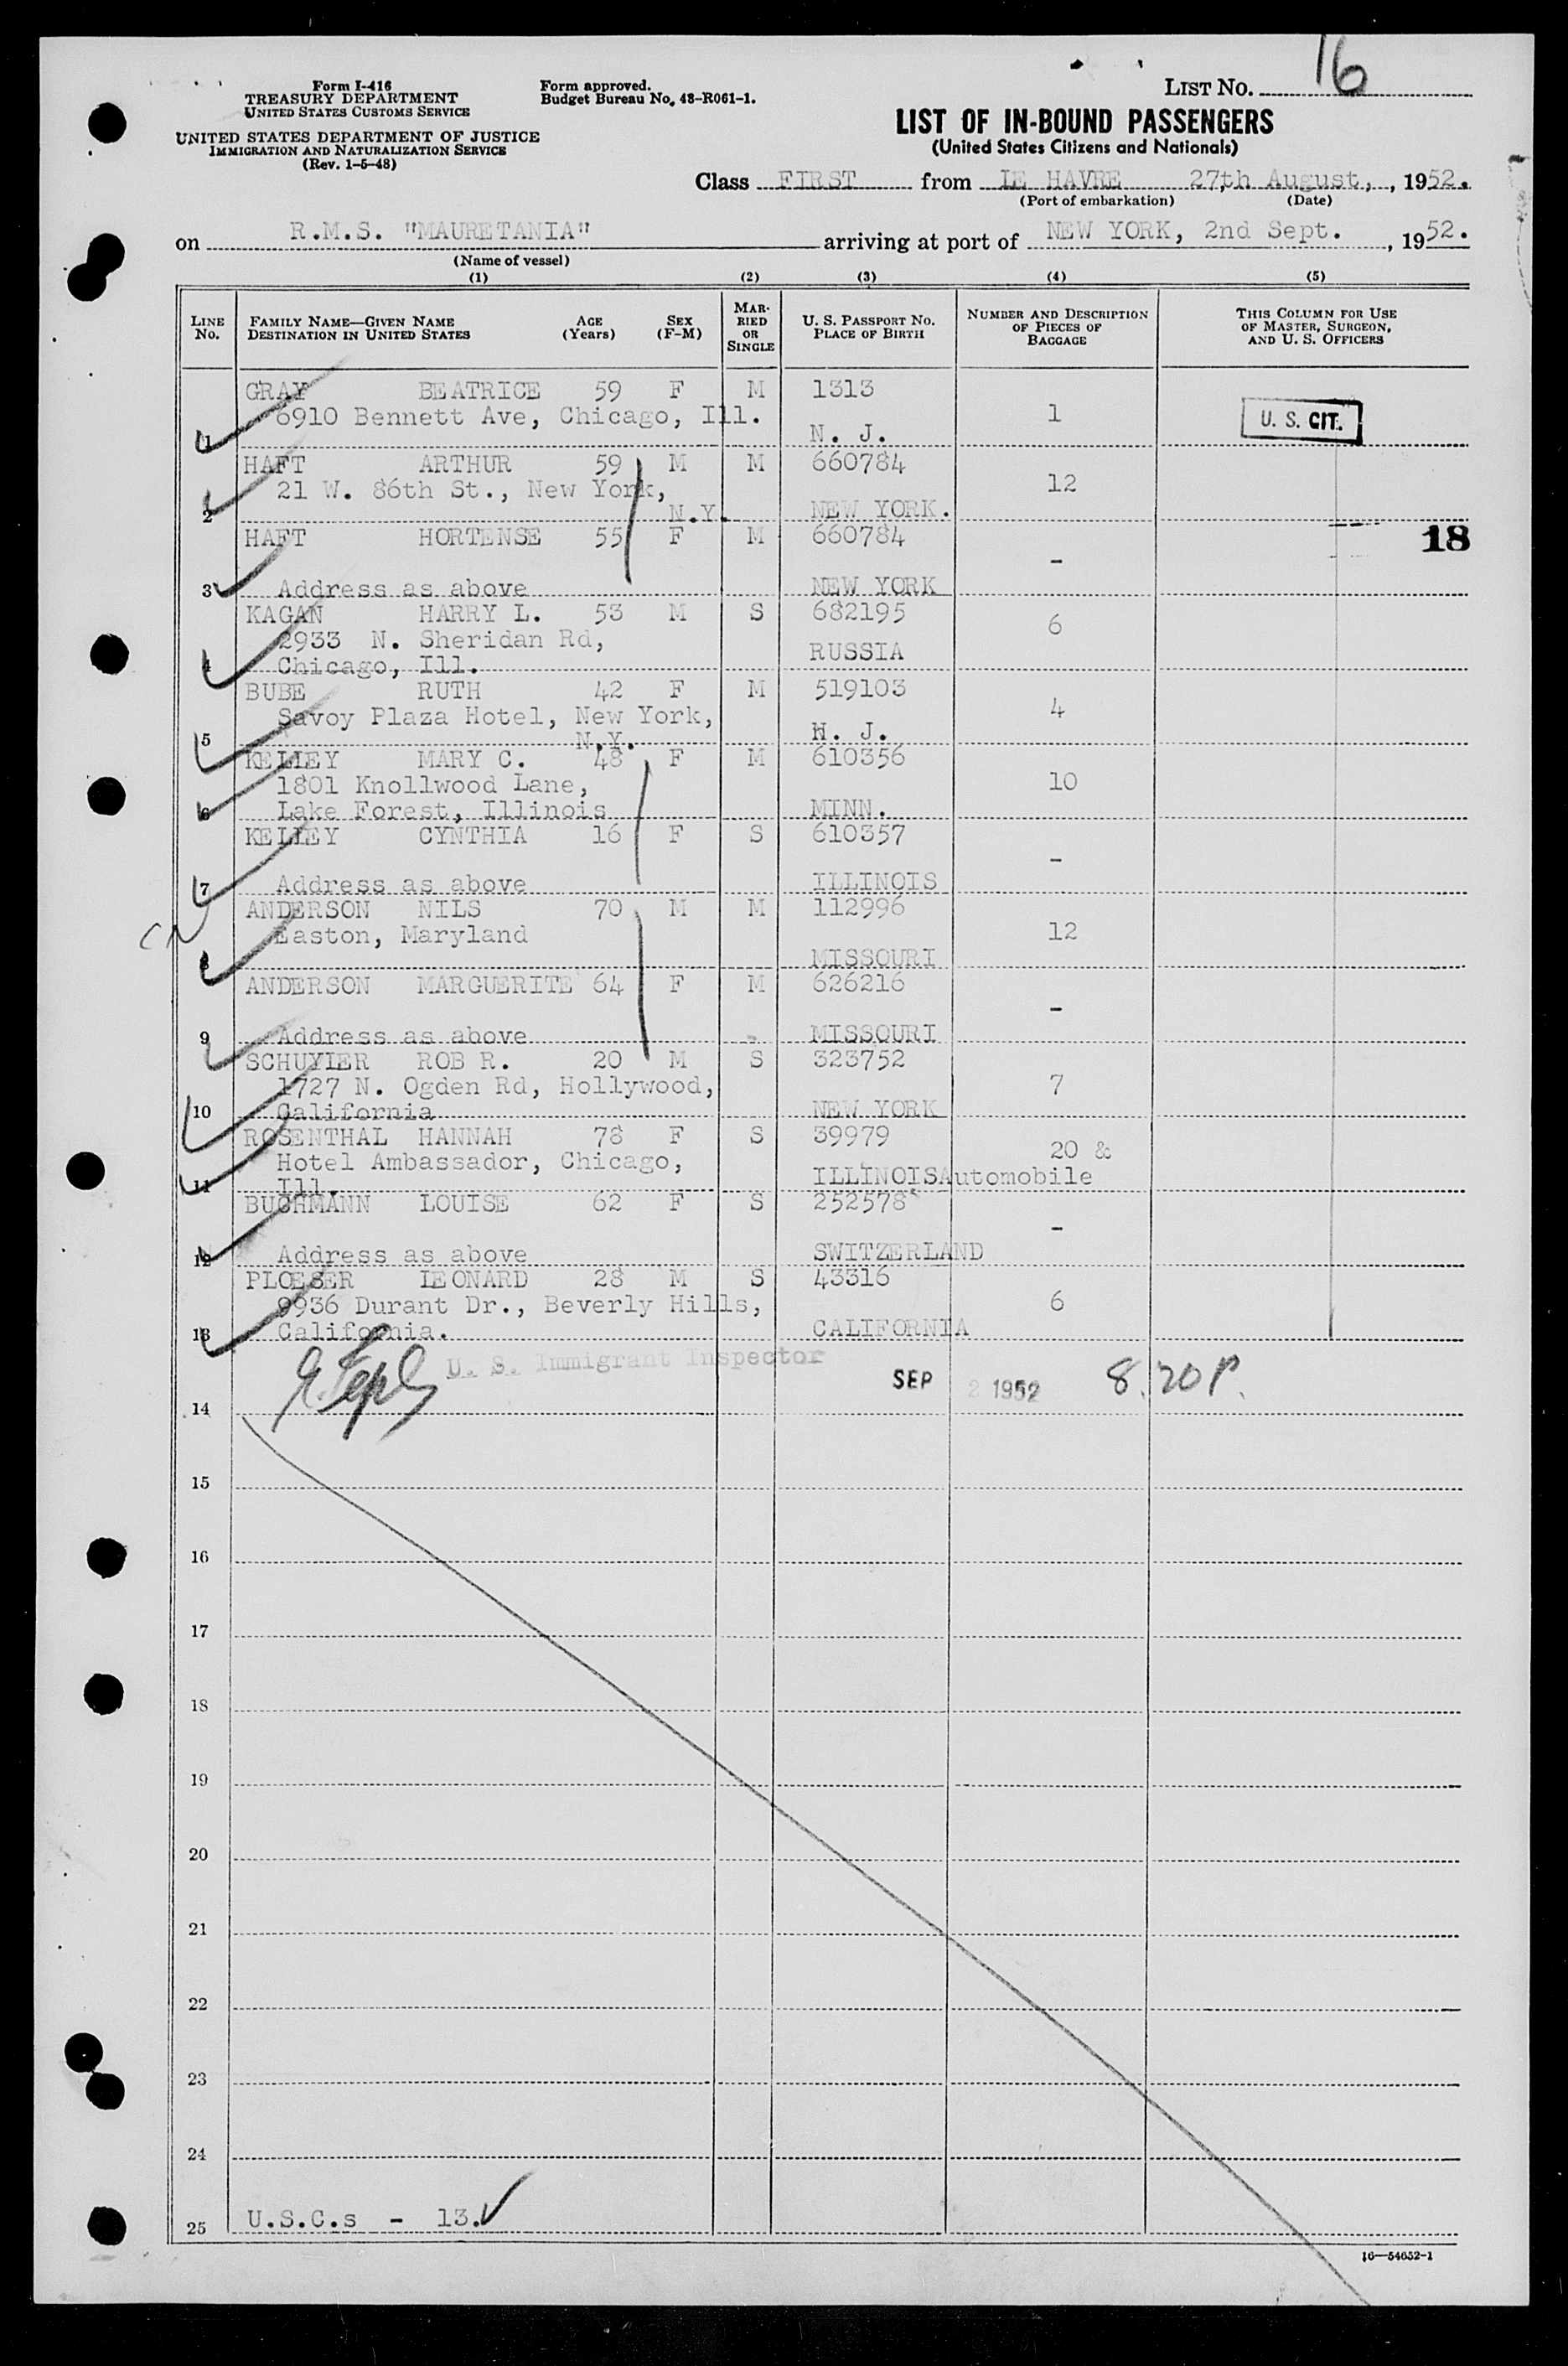 Form I-416
TREASURY DEPARTMENT
UNITED STATES CUSTOMS SERVICE
UNITED STATES DEPARTMENT OF JUSTICE
IMMIGRATION AND NATURALIZATION SERVICE
(Rev. 1-5-48)
Form approved.
Budget Bureau No. 48-R061-1.
LIST No. 16
LIST OF IN-BOUND PASSENGERS
(United States Citizens and Nationals)
Class FIRST from LE HAVRE 27th August, , 1952.
(Port of embarkation) (Date)
on R.M.S. "MAURETANIA" arriving at port of NEW YORK, 2nd Sept. , 1952.
(Name of vessel)
(1) (2) (3) (4) (5)
LINE No. FAMILY NAME—GIVEN NAME DESTINATION IN UNITED STATES AGE (Years) SEX (F-M) MARRIED OR SINGLE U. S. PASSPORT No. PLACE OF BIRTH NUMBER AND DESCRIPTION OF PIECES OF BAGGAGE THIS COLUMN FOR USE OF MASTER, SURGEON, AND U. S. OFFICERS
GRAY BEATRICE 59 F M 1313
6910 Bennett Ave, Chicago, Ill. 1 U. S. CIT.
1 N. J.
HAFT ARTHUR 59 M M 660784
21 W. 86th St., New York, 12
2 N.Y. NEW YORK.
HAFT HORTENSE 55 F M 660784 18
-
3 Address as above NEW YORK
KAGAN HARRY L. 53 M S 682195
2933 N. Sheridan Rd, 6
4 Chicago, Ill. RUSSIA
BUBE RUTH 42 F M 519103
Savoy Plaza Hotel, New York, 4
5 N.Y. J.
KELLEY MARY C. 48 F M 610356
1801 Knollwood Lane, 10
6 Lake Forest, Illinois MINN.
KELLEY CYNTHIA 16 F S 610357
-
7 Address as above ILLINOIS
ANDERSON NILS 70 M M 112996
Easton, Maryland 12
8 MISSOURI
ANDERSON MARGUERITE 64 F M 626216
-
9 Address as above MISSOURI
SCHUYLER ROB R. 20 M S 323752
1727 N. Ogden Rd, Hollywood, 7
10 California NEW YORK
ROSENTHAL HANNAH 78 F S 39979
Hotel Ambassador, Chicago, 20 &
11 Ill. ILLINOIS Automobile
BUCHMANN LOUISE 62 F S 252578
-
12 Address as above SWITZERLAND
PLOESER LEONARD 28 M S 43316
9936 Durant Dr., Beverly Hills, 6
13 California. CALIFORNIA
U. S. Immigrant Inspector SEP 2 1952 8.20 P.
14
15
16
17
18
19
20
21
22
23
24
25 U.S.C.s - 13.
16—54652-1